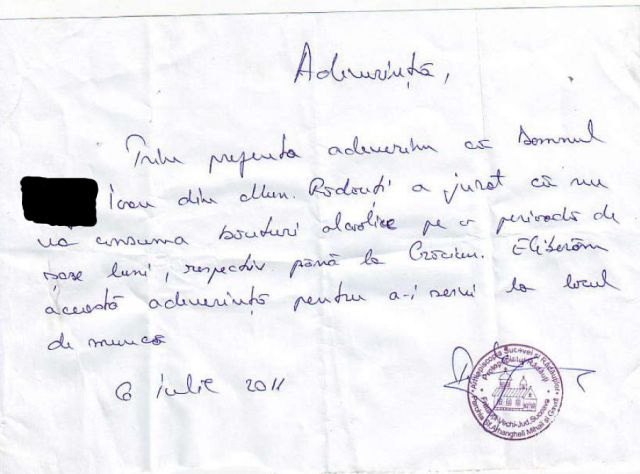 Adeverință,
Prin prezenta adeverim că Domnul
Ioan din Mun. Rădăuți a jurat că nu
va consuma băuturi alcolice pe o perioadă de
șase luni, respectiv până la Crăciun. Eliberăm
această adeverință pentru a-i servi la locul
de muncă
6 iulie 2011
Arhiepiscopia Sucevei și Rădăuților
Protopopiatul Rădăuți
Vechi-Jud. Suceava
Parohia Sf. Arhangheli Mihail și Gavril